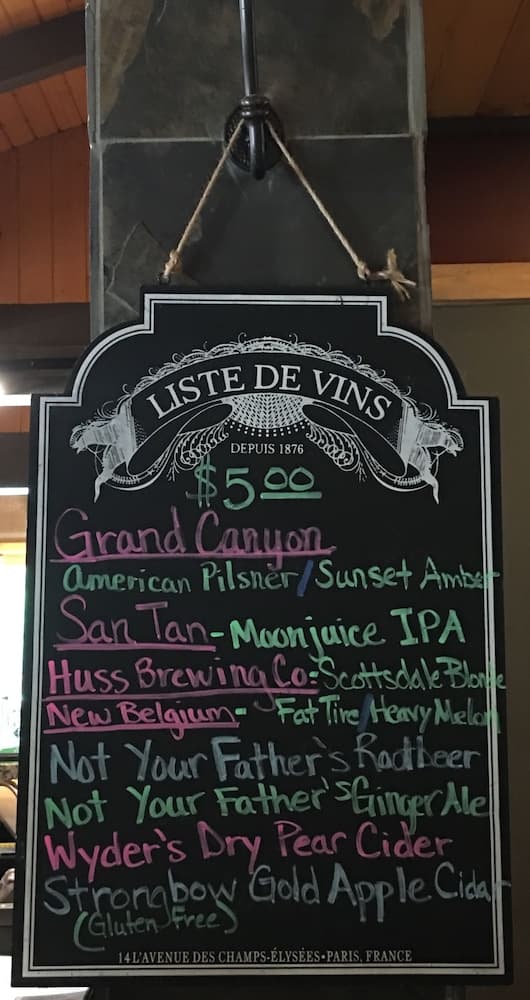 LISTE DE VINS
DEPUIS 1876
$5.00
Grand Canyon
American Pilsner/Sunset Amber
San Tan - Moonjuice IPA
Huss Brewing Co - Scottsdale Blonde
New Belgium - Fat Tire/Heavy Melon
Not Your Father's Rootbeer
Not Your Father's Ginger Ale
Wyder's Dry Pear Cider
Strongbow Gold Apple Cidar
(Gluten Free)
14 L'AVENUE DES CHAMPS-ÉLYSÉES•PARIS, FRANCE